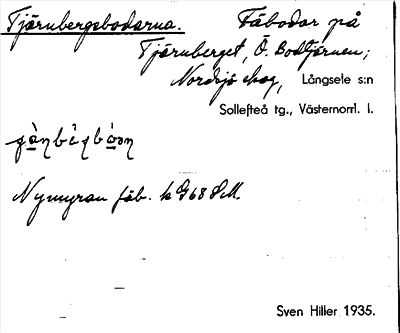 Tjärnbergsbodarna. Fäbodar på
Tjärnberget, Ö. Bodtjärnen;
Nordsjö skog, Långsele s:n
Sollefteå tg., Västernorrl. l.
Nymyran fäb. k G68 SM.
Sven Hiller 1935.